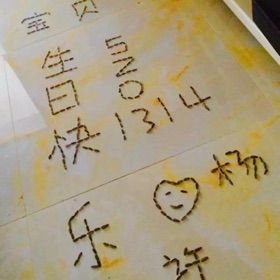 宝贝
生日快乐
520
1314
杨
许